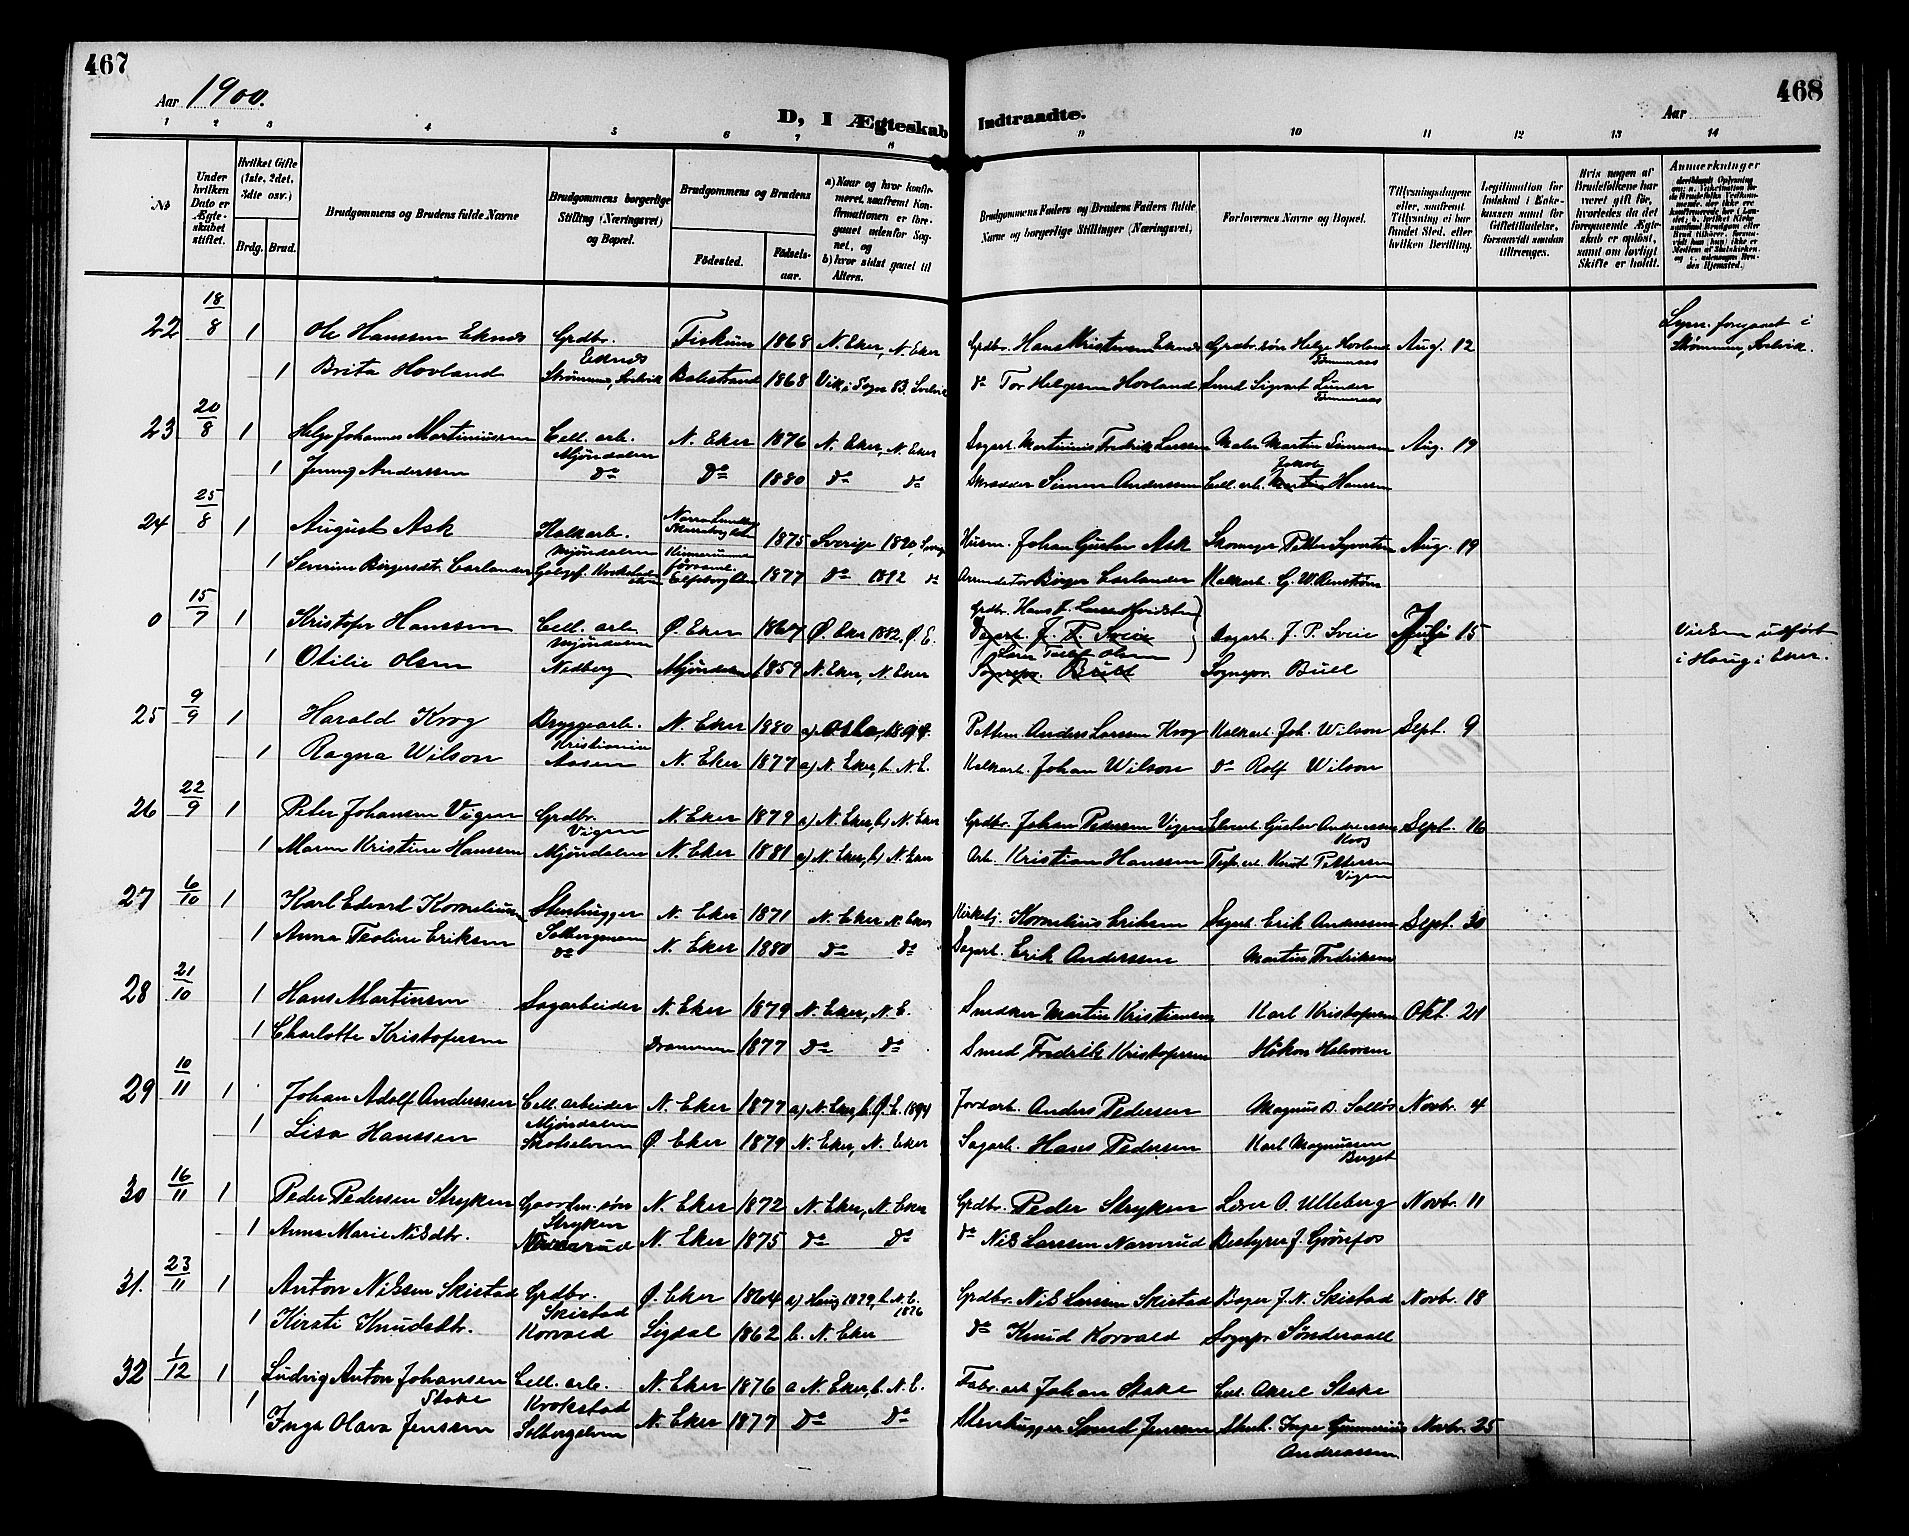 467
468
Aar 1900.
Aar
D, I Ægteskab Indtraadte.
1 2 3 4 5 6 7 8 9 10 11 12 13 14
No
Under hvilken Dato er Ægteskabet stiftet.
Hvilket Gifte (1ste, 2det, 3die osv.)
Brdg. Brud.
Brudgommens og Brudens fulde Navne
Brudgommens borgerlige Stilling (Næringsvei) og Bopæl.
Brudgommens og Brudens
Födested. Födselsaar.
a) Naar og hvor konfirmeret, saafremt Konfirmationen er foregaaet udenfor Sognet, og b) hvor sidst gaaet til Alters.
Brudgommens Faders og Brudens Faders fulde Navne og borgerlige Stillinger (Næringsvei)
Forlovernes Navne og Bopæl.
Tillysningsdagene eller, saafremt Tillysning ei har fundet Sted, efter hvilken Bevilling.
Legitimation for Indskud i Enkekassen samt for Giftetilladelse, forsaavidt saadan tiltrænges.
Hvis nogen af Brudefolkene har været gift før, hvorledes da det foregaaende Ægteskab er opløst, samt om lovligt Skifte er holdt.
Anmærkninger
22 18/8 1 Ole Hanssen Eknes Grdbr. Eknes Fiskum 1868 N. Eker, N. Eker Grdbr. Hans Kristensen Eknes Grdbr.søn Helge Hovland Aug. 12
Lysn. foregaaet i Strømmen, Svelvik.
1 Brita Hovland Strømmen, Svelvik Balestrand 1868 Vik i Sogn 83. Svelvik do Tor Helgesen Hovland Smed Sigvart Lunder
23 20/8 1 Helge Johannes Martiniussen Cell. arb. Mjøndalen N. Eker 1876 N. Eker, N. Eker Sagarb. Martinius Fredrik Larssen Maler Martin Simensen Aug. 19
1 Jenny Anderssen do do 1880 do do Skrædder Simen Anderssen Cell. arb. Jakob Hanssen
24 25/8 1 August Ask Kalkarb. Mjøndalen 1875 Sverige 1890, Sverige Husm. Johan Gustav Ask Skomager Petter Syvertsen Aug. 19
1 Severine Börgersdtr. Carlander 1877 do 1892 do Arrendator Börger Carlander Kalkarb. G. W. Renström
0 15/7 1 Kristofer Hanssen Cell. arb. Mjøndalen Ø. Eker 1867 Ø. Eker 1882, Ø. E. Grdbr. Hans F. Larssen Hvidsten Sagarb. J. P. Sveie Sagarb. J. P. Sveie Juli 15
Vielsen udført i Haug i Eker.
1 Otilie Olsen Nedberg Mjøndalen 1859 N. Eker, N. Eker Lærer Tollef Olsen Sognepr. Bull Sognepr. Bull
25 9/9 1 Harald Krog Bryggearb. Kristiania N. Eker 1880 a) Oslo, 1894. Pottem. Anders Larssen Krog Kalkarb. Joh. Wilson Sept. 9
1 Ragna Wilson Aasen N. Eker 1877 a) N. Eker, b. N. E. Kalkarb. Johan Wilson do Rolf Wilson
26 22/9 1 Peter Johansen Vigen Grdbr. Vigen N. Eker 1879 a) N. Eker, b) N. Eker Grdbr. Johan Pedersen Vigen Gustav Andreassen Krog Sept. 16
1 Maren Kristine Hanssen Mjøndalen N. Eker 1881 a) N. Eker, b) N. Eker Arb. Kristian Hanssen Knut Pettersen Vigen
27 6/10 1 Karl Edvard Korneliussen Stenhugger Solbergmoen N. Eker 1871 N. Eker N. Eker Kirketj. Kornelius Eriksen Sagarb. Erik Anderssen Sept. 30
1 Anna Teoline Eriksen do N. Eker 1880 do do Sagarb. Erik Anderssen Martin Fredriksen
28 21/10 1 Hans Martinsen Sagarbeider N. Eker 1879 N. Eker, N. E. Snedker Martin Kristiansen Karl Kristofersen Okt. 21
1 Charlotte Kristofersen Drammen 1877 do do Smed Fredrik Kristofersen Håkon Halvorsen
29 10/11 1 Johan Adolf Anderssen Cell. arbeider Mjøndalen N. Eker 1877 a) N. Eker, b. Ø. E. 1894 Jordarb. Anders Pedersen Magnus D. Solløs Novbr. 4
1 Lisa Hanssen Skotselven Ø. Eker 1879 N. Eker, N. Eker Sagarb. Hans Pedersen Karl Magnussen Berget
30 16/11 1 Peder Pedersen Stryken Gaardm. søn Stryken N. Eker 1872 N. Eker, N. Eker Grdbr. Peder Stryken Lærer O. Ulleberg Novbr. 11
1 Anne Marie Nilsdtr. Narverud N. Eker 1875 do do do Nils Larssen Narverud Bestyrer J. Grönfos
31. 23/11 1 Anton Nilssen Skistad Grdbr. Skistad Ø. Eker 1864 a) Haug 1879, b. N. E. 1876 Grdbr. Nils Larssen Skistad Bager J. N. Skistad Novbr. 18
1 Kirsti Knudsdtr. Korvald Sigdal 1862 b. N. Eker do Knud Korvald Sognepr. Sønderaall
32 1/12 1 Ludvig Anton Johansen Stake Cell. arb. Krokstad N. Eker 1876 a N. Eker, b. N. E. Fabr. arb. Johan Stake Axel Stake
1 Inga Olava Jenssen Solbergelven N. Eker 1877 do do Stenhugger Svend Jenssen Inge Gunnerius Andreassen Novbr. 25